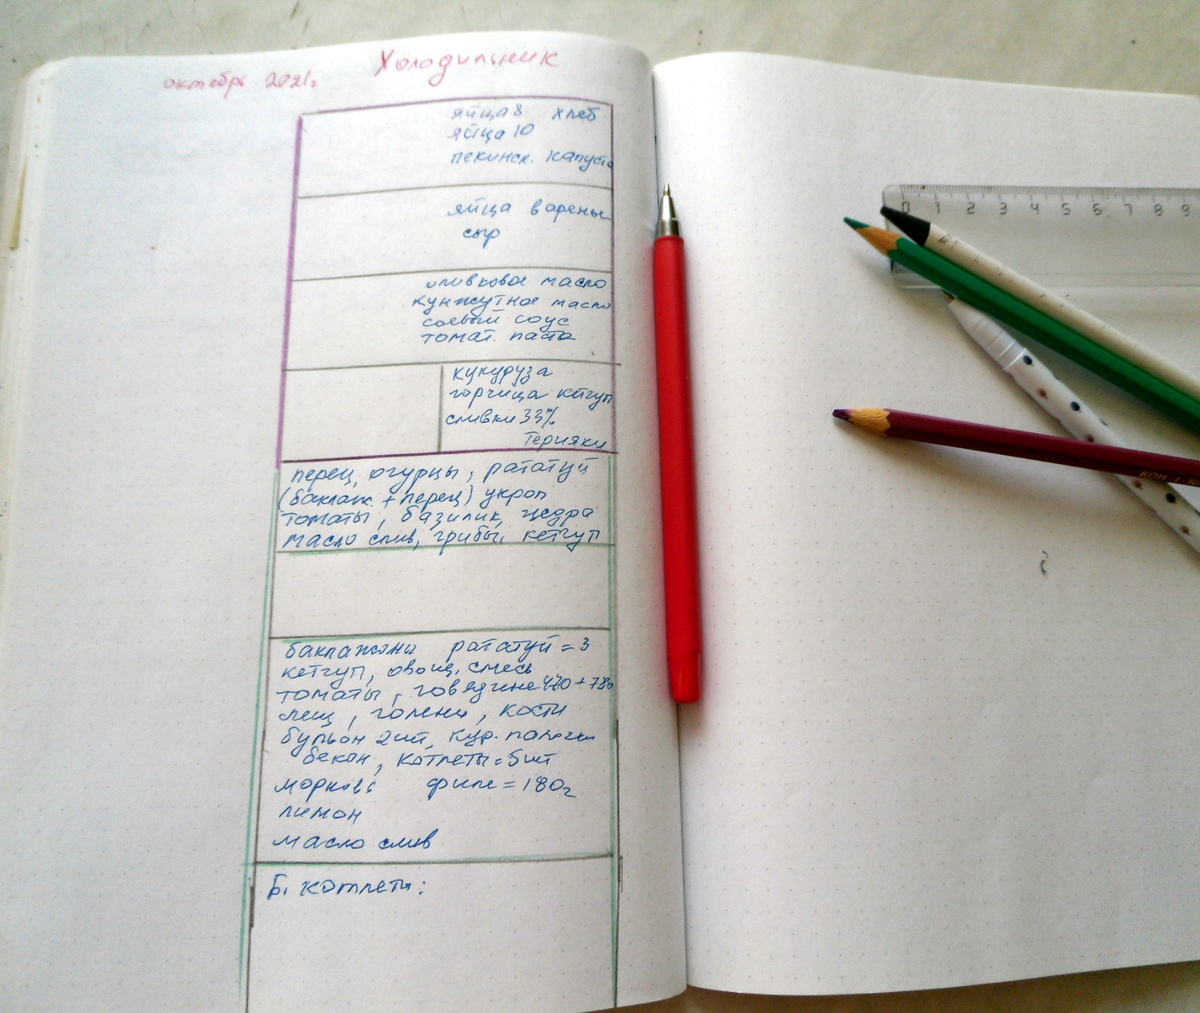 Холодильник
октябрь 2021г
яйца 8 хлеб
яйца 10
пекинск. капуста
яйца варены
сыр
оливковое масло
кунжутное масло
соевый соус
томат. паста
кукуруза
горчица кетчуп
сливки 33%
Терияки
перец, огурцы, рататуй
(баклаж. + перец) укроп
томаты, базилик, цедра
масло слив, грибы, кетчуп
баклажаны рататуй = 3
кетчуп, овощ. смесь
томаты, говядине 470 + 780
лещ, голени, кости
бульон 2шт, кур. палочки
бекон, котлеты = 5шт
морковь филе = 180г
лимон
масло слив
Б. котлеты:
0 1 2 3 4 5 6 7 8 9